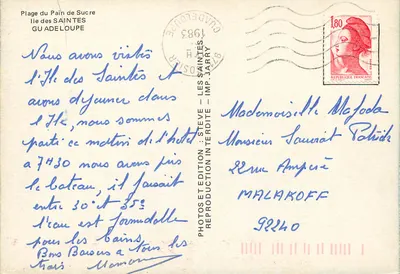 Plage du Pain de Sucre
Ile des SAINTES
GUADELOUPE
Nous avons visités
l'Ile des Saintes et
avons déjeuner dans
l'Ile, nous sommes
partie ce matin de l'hotel
a 7H30 nous avons pris
le bateau, il faisait
entre 30° et 35°
l'eau est formidable
pour les bains.
Bons Baisers a tous les
trois. Maman
PHOTOS ET EDITION : STEVE - LES SAINTES
REPRODUCTION INTERDITE - IMP. JARRY
GUADELOUPE
1983
1,80
Mademoiselle
Monsieur
22 rue Ampère
MALAKOFF
92240